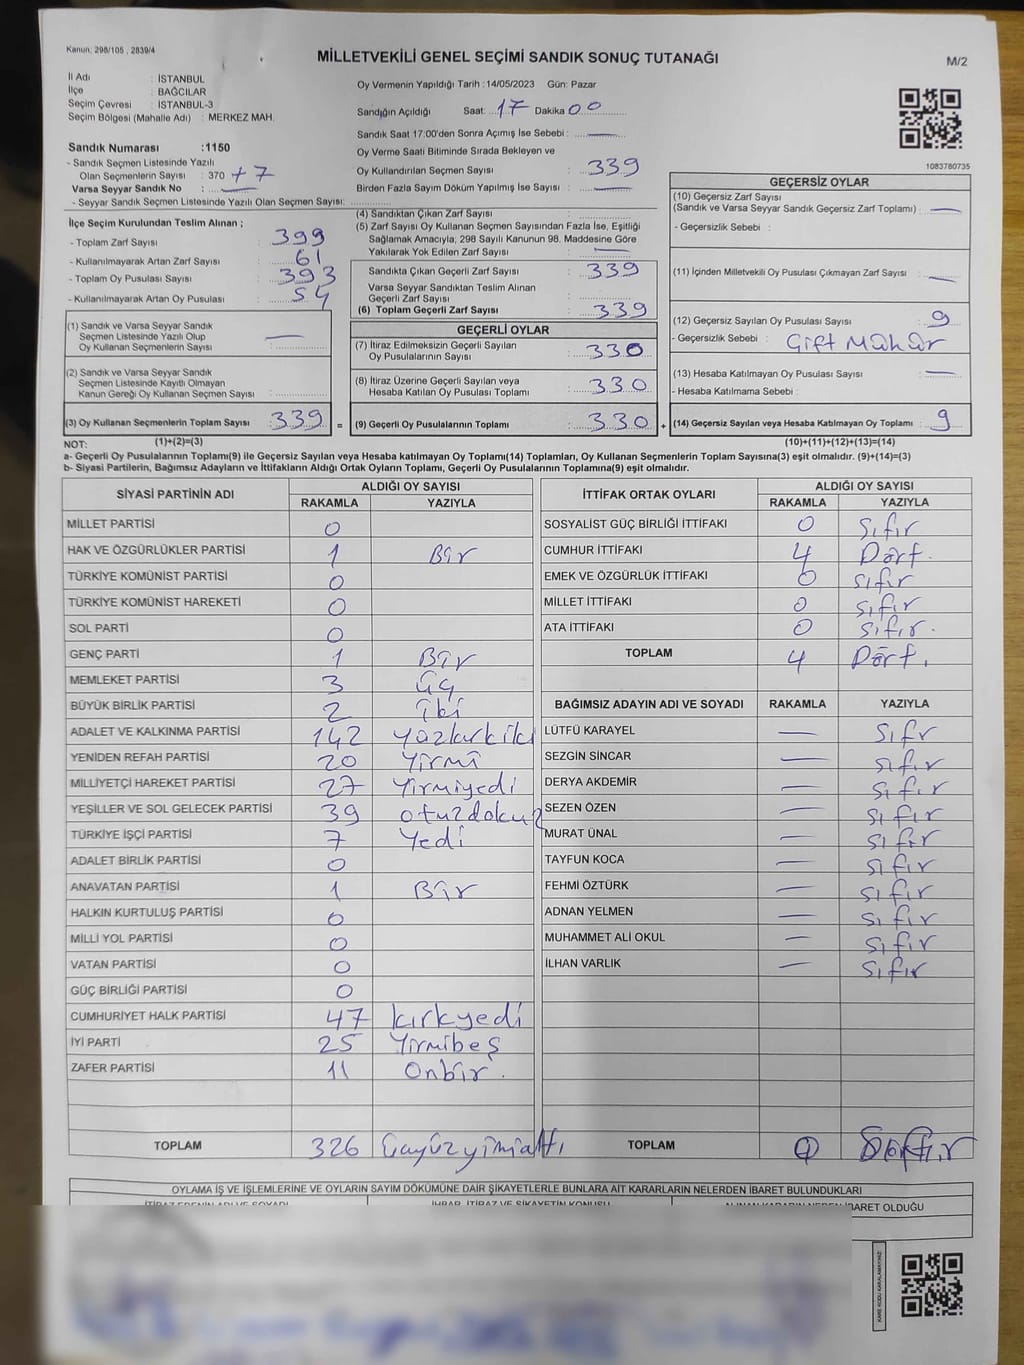 Kanun: 298/105 , 2839/4
MİLLETVEKİLİ GENEL SEÇİMİ SANDIK SONUÇ TUTANAĞI
M/2
İl Adı : İSTANBUL
İlçe : BAĞCILAR
Seçim Çevresi : İSTANBUL-3
Seçim Bölgesi (Mahalle Adı) : MERKEZ MAH.
Oy Vermenin Yapıldığı Tarih : 14/05/2023 Gün: Pazar
Sandığın Açıldığı Saat: 17 Dakika 00
Sandık Saat 17:00'den Sonra Açımış İse Sebebi : —
Oy Verme Saati Bitiminde Sırada Bekleyen ve
Oy Kullandırılan Seçmen Sayısı : 339
Birden Fazla Sayım Döküm Yapılmış İse Sayısı : —
1083780735
Sandık Numarası :1150
- Sandık Seçmen Listesinde Yazılı
Olan Seçmenlerin Sayısı : 370 +7
Varsa Seyyar Sandık No : —
- Seyyar Sandık Seçmen Listesinde Yazılı Olan Seçmen Sayısı:
İlçe Seçim Kurulundan Teslim Alınan ;
- Toplam Zarf Sayısı : 399
- Kullanılmayarak Artan Zarf Sayısı : 61
- Toplam Oy Pusulası Sayısı : 393
- Kullanılmayarak Artan Oy Pusulası : 54
(1) Sandık ve Varsa Seyyar Sandık
Seçmen Listesinde Yazılı Olup
Oy Kullanan Seçmenlerin Sayısı : —
(2) Sandık ve Varsa Seyyar Sandık
Seçmen Listesinde Kayıtlı Olmayan
Kanun Gereği Oy Kullanan Seçmen Sayısı :
(3) Oy Kullanan Seçmenlerin Toplam Sayısı : 339 =
(4) Sandıktan Çıkan Zarf Sayısı :
(5) Zarf Sayısı Oy Kullanan Seçmen Sayısından Fazla İse, Eşitliği
Sağlamak Amacıyla; 298 Sayılı Kanunun 98. Maddesine Göre
Yakılarak Yok Edilen Zarf Sayısı : —
Sandıkta Çıkan Geçerli Zarf Sayısı : 339
Varsa Seyyar Sandıktan Teslim Alınan
Geçerli Zarf Sayısı :
(6) Toplam Geçerli Zarf Sayısı : 339
GEÇERLİ OYLAR
(7) İtiraz Edilmeksizin Geçerli Sayılan
Oy Pusulalarının Sayısı : 330
(8) İtiraz Üzerine Geçerli Sayılan veya
Hesaba Katılan Oy Pusulası Toplamı : 330
(9) Geçerli Oy Pusulalarının Toplamı : 330 +
GEÇERSİZ OYLAR
(10) Geçersiz Zarf Sayısı
(Sandık ve Varsa Seyyar Sandık Geçersiz Zarf Toplamı) : —
- Geçersizlik Sebebi :
(11) İçinden Milletvekili Oy Pusulası Çıkmayan Zarf Sayısı : —
(12) Geçersiz Sayılan Oy Pusulası Sayısı : 9
- Geçersizlik Sebebi : Çift Mühür
(13) Hesaba Katılmayan Oy Pusulası Sayısı : —
- Hesaba Katılmama Sebebi :
(14) Geçersiz Sayılan veya Hesaba Katılmayan Oy Toplamı : 9
NOT: (1)+(2)=(3) (10)+(11)+(12)+(13)=(14)
a- Geçerli Oy Pusulalarının Toplamı(9) ile Geçersiz Sayılan veya Hesaba Katılmayan Oy Toplamı(14) Toplamları, Oy Kullanan Seçmenlerin Toplam Sayısına(3) eşit olmalıdır. (9)+(14)=(3)
b- Siyasi Partilerin, Bağımsız Adayların ve İttifakların Aldığı Ortak Oyların Toplamı, Geçerli Oy Pusulalarının Toplamına(9) eşit olmalıdır.
SİYASİ PARTİNİN ADI ALDIĞI OY SAYISI
RAKAMLA YAZIYLA
MİLLET PARTİSİ 0
HAK VE ÖZGÜRLÜKLER PARTİSİ 1 Bir
TÜRKİYE KOMÜNİST PARTİSİ 0
TÜRKİYE KOMÜNİST HAREKETİ 0
SOL PARTİ 0
GENÇ PARTİ 1 Bir
MEMLEKET PARTİSİ 3 üç
BÜYÜK BİRLİK PARTİSİ 2 iki
ADALET VE KALKINMA PARTİSİ 142 yüzkırkiki
YENİDEN REFAH PARTİSİ 20 Yirmi
MİLLİYETÇİ HAREKET PARTİSİ 27 Yirmiyedi
YEŞİLLER VE SOL GELECEK PARTİSİ 39 otuzdokuz
TÜRKİYE İŞÇİ PARTİSİ 7 Yedi
ADALET BİRLİK PARTİSİ 0
ANAVATAN PARTİSİ 1 Bir
HALKIN KURTULUŞ PARTİSİ 0
MİLLİ YOL PARTİSİ 0
VATAN PARTİSİ 0
GÜÇ BİRLİĞİ PARTİSİ 0
CUMHURİYET HALK PARTİSİ 47 kırkyedi
İYİ PARTİ 25 Yirmibeş
ZAFER PARTİSİ 11 Onbir.
TOPLAM 326 üçyüzyirmialtı
İTTİFAK ORTAK OYLARI ALDIĞI OY SAYISI
RAKAMLA YAZIYLA
SOSYALİST GÜÇ BİRLİĞİ İTTİFAKI 0 Sıfır
CUMHUR İTTİFAKI 4 Dört.
EMEK VE ÖZGÜRLÜK İTTİFAKI 0 sıfır
MİLLET İTTİFAKI 0 sıfır
ATA İTTİFAKI 0 sıfır.
TOPLAM 4 Dört.
BAĞIMSIZ ADAYIN ADI VE SOYADI RAKAMLA YAZIYLA
LÜTFÜ KARAYEL — Sıfr
SEZGİN SİNCAR — sıfır
DERYA AKDEMİR — sıfır
SEZEN ÖZEN — sıfır
MURAT ÜNAL — sıfır
TAYFUN KOCA — sıfır
FEHMİ ÖZTÜRK — sıfır
ADNAN YELMEN — sıfır
MUHAMMET ALİ OKUL — sıfır
İLHAN VARLIK — sıfır
TOPLAM
OYLAMA İŞ VE İŞLEMLERİNE VE OYLARIN SAYIM DÖKÜMÜNE DAİR ŞİKAYETLERLE BUNLARA AİT KARARLARIN NELERDEN İBARET BULUNDUKLARI
İBARET OLDUĞU
KARE KODU KARALAMAYINIZ!